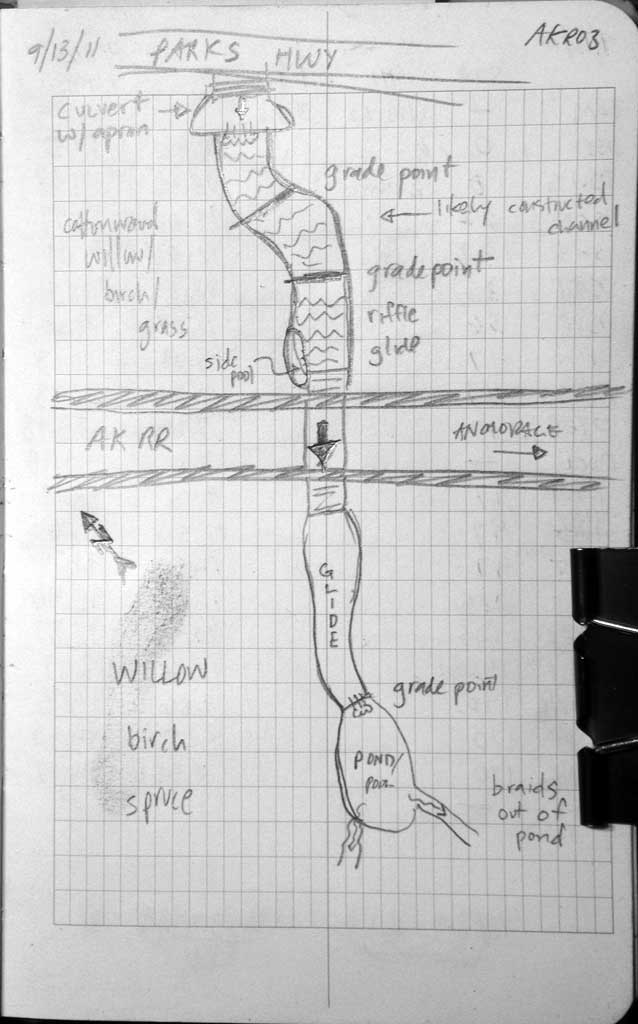 9/13/11
PARKS HWY
AKR03
culvert
w/ apron
grade point
likely constructed
channel
cottonwood
willow/
birch/
grass
grade point
riffle
glide
side
pool
AK RR
ANCHORAGE
GLIDE
WILLOW
birch
spruce
grade point
POND/
POOL
braids
out of
pond